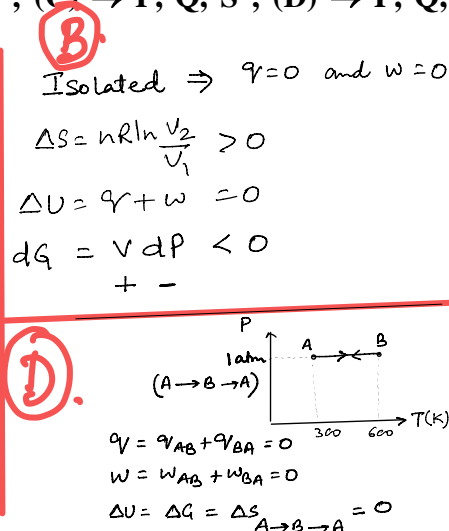 , (C) → P, Q, S ; (D) → P, Q,
B.
Isolated ⇒ q=0 and w=0
ΔS = nRln V₂/V₁ > 0
ΔU = q+w = 0
dG = V dP < 0
+ -
D.
P
1 atm A B
(A→B→A)
300 600 T(K)
q = q_AB + q_BA = 0
w = w_AB + w_BA = 0
ΔU = ΔG = ΔS_A→B→A = 0